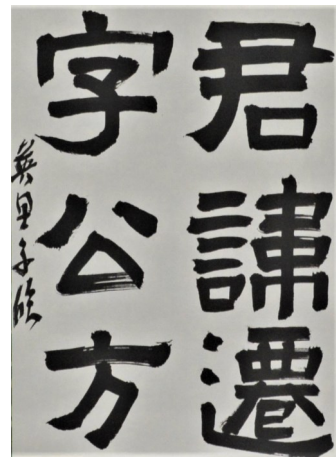 君諱遷
字公方
英里子臨